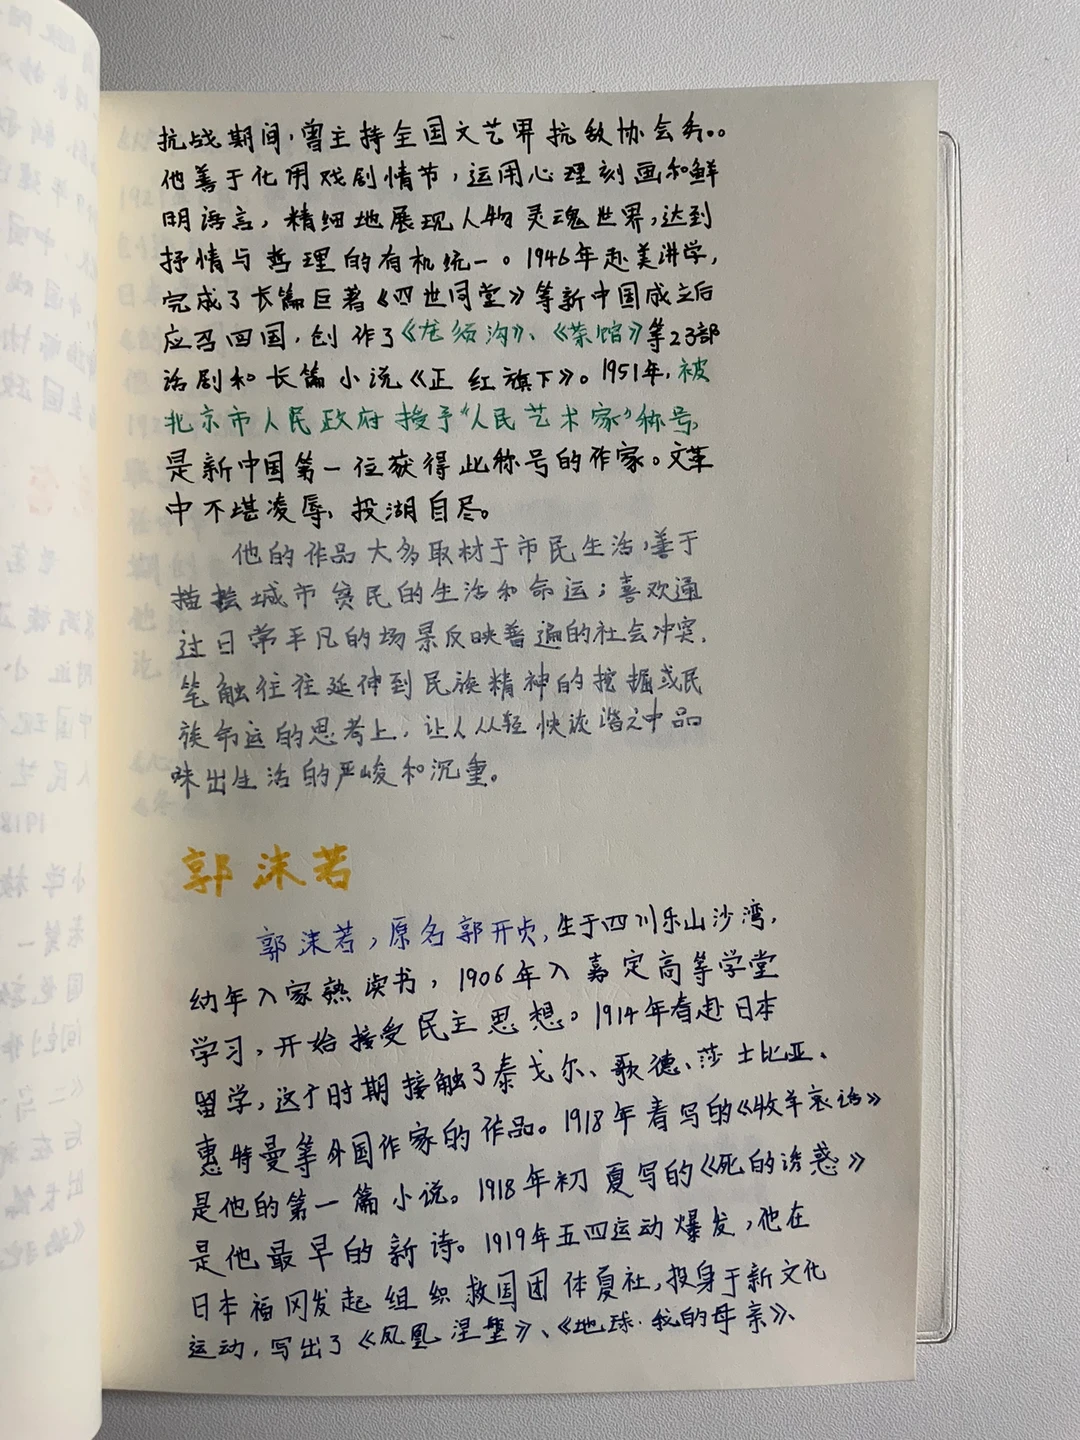 抗战期间,曾主持全国文艺界抗敌协会务。。
他善于化用戏剧情节,运用心理刻画和鲜
明语言,精细地展现人物灵魂世界,达到
抒情与哲理的有机统一。1946年赴美讲学,
完成了长篇巨著《四世同堂》等新中国成立后
应召回国,创作了《龙须沟》、《茶馆》等23部
话剧和长篇小说《正红旗下》。1951年,被
北京市人民政府授予"人民艺术家"称号,
是新中国第一位获得此称号的作家。文革
中不堪凌辱,投湖自尽。
他的作品大多取材于市民生活,善于
描绘城市贫民的生活和命运;喜欢通
过日常平凡的场景反映普遍的社会冲突,
笔触往往延伸到民族精神的挖掘或民
族命运的思考上,让人从轻快诙谐之中品
味出生活的严峻和沉重。
郭沫若
郭沫若,原名郭开贞,生于四川乐山沙湾,
幼年入家熟读书,1906年入嘉定高等学堂
学习,开始接受民主思想。1914年春赴日本
留学,这个时期接触了泰戈尔、歌德、莎士比亚、
惠特曼等外国作家的作品。1918年春写的《牧羊哀话》
是他的第一篇小说。1918年初夏写的《死的诱惑》
是他最早的新诗。1919年五四运动爆发,他在
日本福冈发起组织救国团体夏社,投身于新文化
运动,写出了《凤凰涅槃》、《地球·我的母亲》、